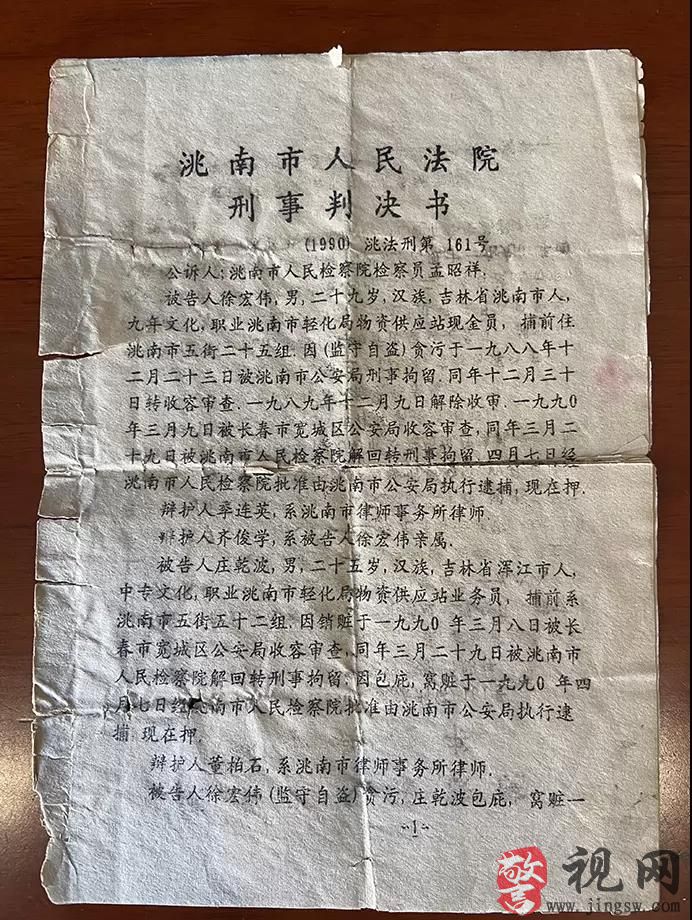 洮南市人民法院
刑事判决书
(1990) 洮法刑第 161号
公诉人:洮南市人民检察院检察员孟昭祥.
被告人徐宏伟,男,二十九岁,汉族,吉林省洮南市人,
九年文化,职业洮南市轻化局物资供应站现金员, 捕前住
洮南市五街二十五组.因(监守自盗)贪污于一九八八年十
二月二十三日被洮南市公安局刑事拘留.同年十二月三十
日转收容审查.一九八九年十二月九日解除收审.一九九0
年三月九日被长春市宽城区公安局收容审查,同年三月二
十九日被洮南市人民检察院解回转刑事拘留.四月七日经
洮南市人民检察院批准由洮南市公安局执行逮捕,现在押.
辩护人率连英,系洮南市律师事务所律师.
辩护人齐俊学,系被告人徐宏伟亲属.
被告人庄乾波,男,二十五岁,汉族,吉林省浑江市人,
中专文化,职业洮南市轻化局物资供应站业务员, 捕前系
洮南市五街五十二组.因销赃于一九九0 年三月八日被长
春市宽城区公安局收容审查,同年三月二十九日被洮南市
人民检察院解回转刑事拘留.因包庇,窝赃于一九九0 年四
月七日经洮南市人民检察院批准由洮南市公安局执行逮
捕,现在押.
辩护人董柏石,系洮南市律师事务所律师.
被告人徐宏伟(监守自盗)贪污,庄乾波包庇, 窝赃一
-1-
警视网
www.jingsw.com